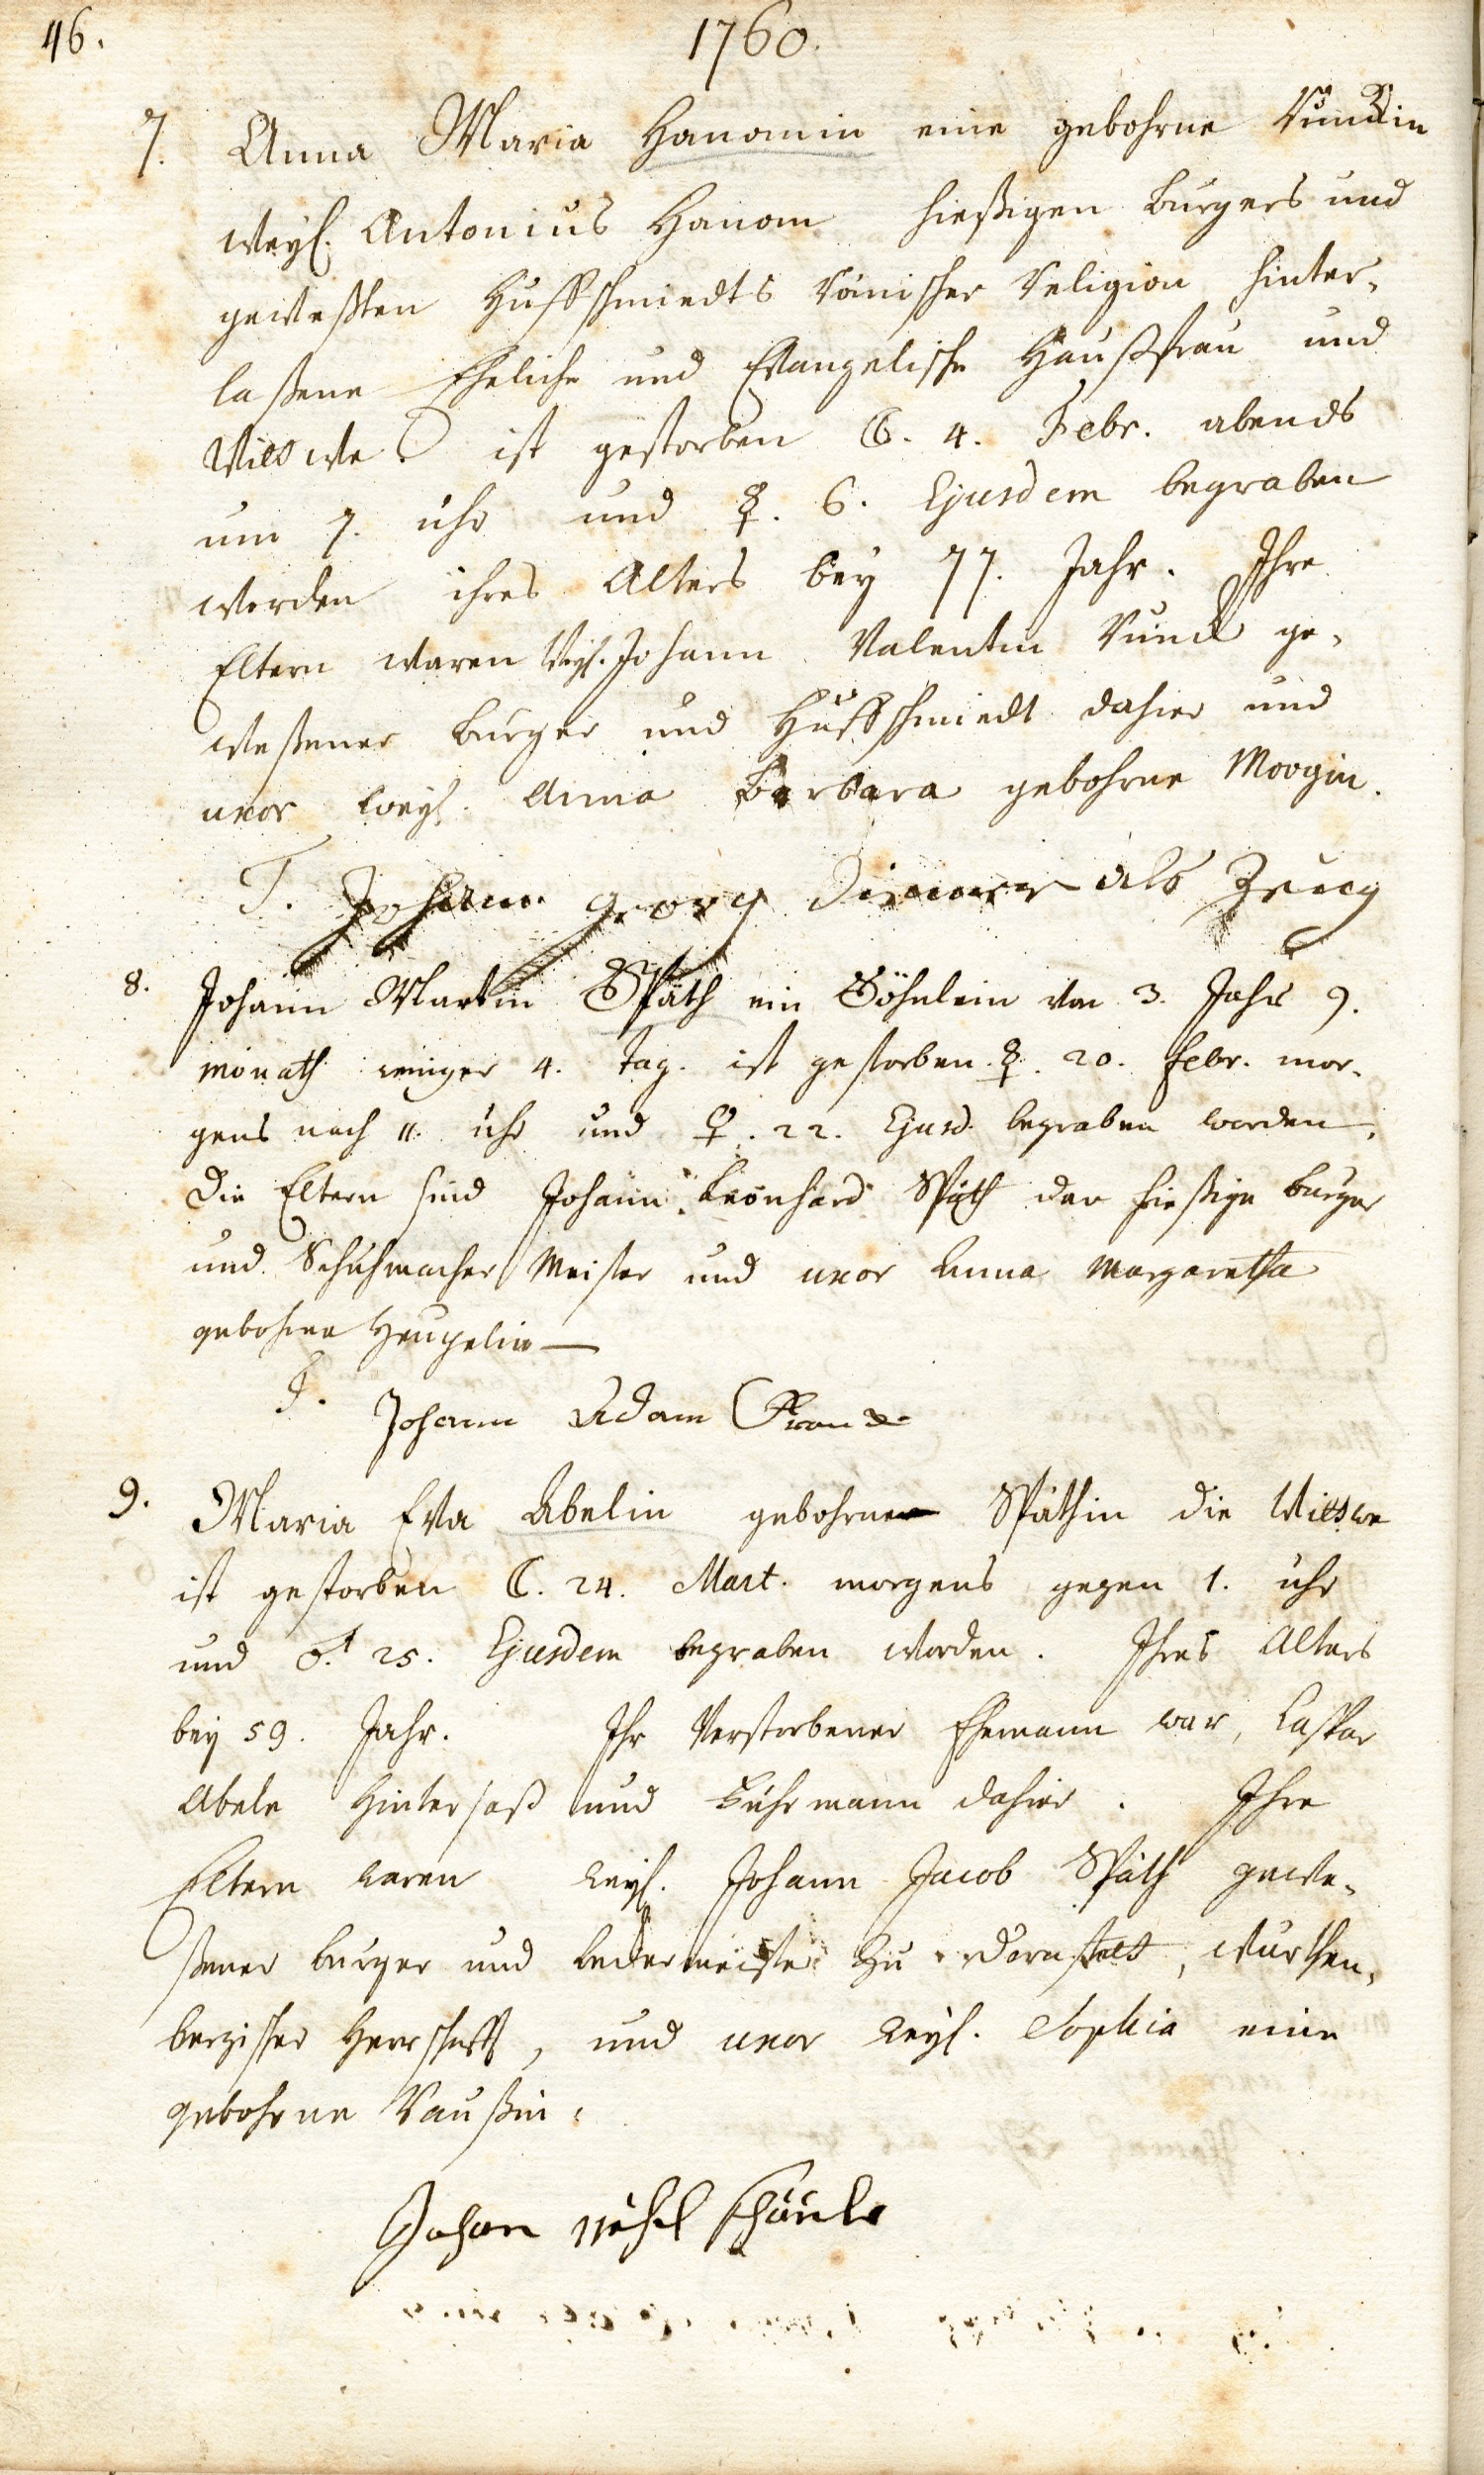 46.
1760.
7. Anna Maria Hanomin eine gebohrne Rundin
weyl. Antonius Hanom hießigen Burgers und
geweßten Huffschmiedts Römischer Religion hinter-
laßene Eheliche und Evangelische Haußfrau und
Wittwe ist gestorben ☾. 4. Febr. abends
um 7. uhr und ☿. 6. Ejusdem begraben
worden ihres Alters bey 77. Jahr. Ihre
Eltern waren Weyl. Johann Valentin Rund ge-
weßener Burger und Huffschmiedt dahier und
uxor weyl. Anna Barbara gebohrne Moogin.
T. Johann Georg als Zeug
8. Johann Martin Späth ein Söhnlein von 3. Jahr 9.
monath weniger 4. Tag. ist gestorben ☿. 20. Febr. mor-
gens nach 11. uhr und ♀. 22. Ejusd. begraben worden.
Die Eltern sind Johann Leonhard Späth der hießige burger
und Schuhmacher Meister und uxor Anna Margaretha
gebohrne Heugelin
T. Johann Adam Franck
9. Maria Eva Abelin gebohrne Späthin die Wittwe
ist gestorben ☾. 24. Mart. morgens gegen 1. uhr
und ♂. 25. Ejusdem begraben worden. Ihres Alters
bey 59. Jahr. Ihr Verstorbener Ehemann war, Caspar
Abele Hintersaß und Fuhrmann dahier. Ihre
Eltern waren weyl. Johann Jacob Späth gewe-
ßener burger und Ledermeister zu Dornstett, Würthen-
bergischer Herrschafft, und uxor weyl. Sophia eine
gebohrne Raußin.
Johan Schäule